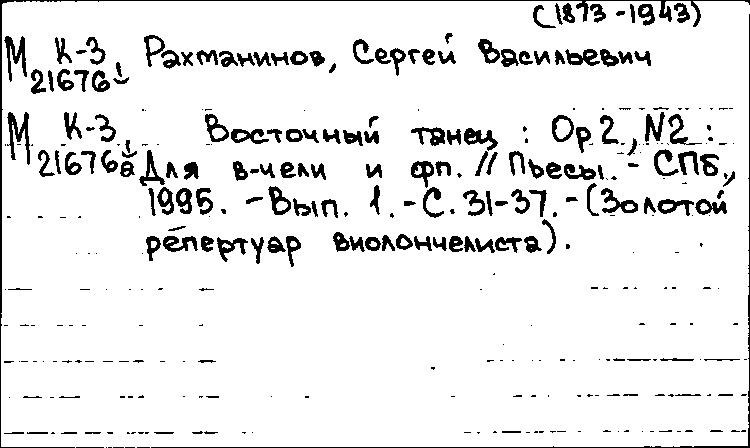 (1873-1943)
М К-3 21676 1 Рахманинов, Сергей Васильевич
М К-3 21676 1а Восточный танец : Op 2, N2 :
Для в-чели и фп. // Пьесы. - СПб.,
1995. - Вып. 1. - С. 31-37. - (Золотой
репертуар виолончелиста).